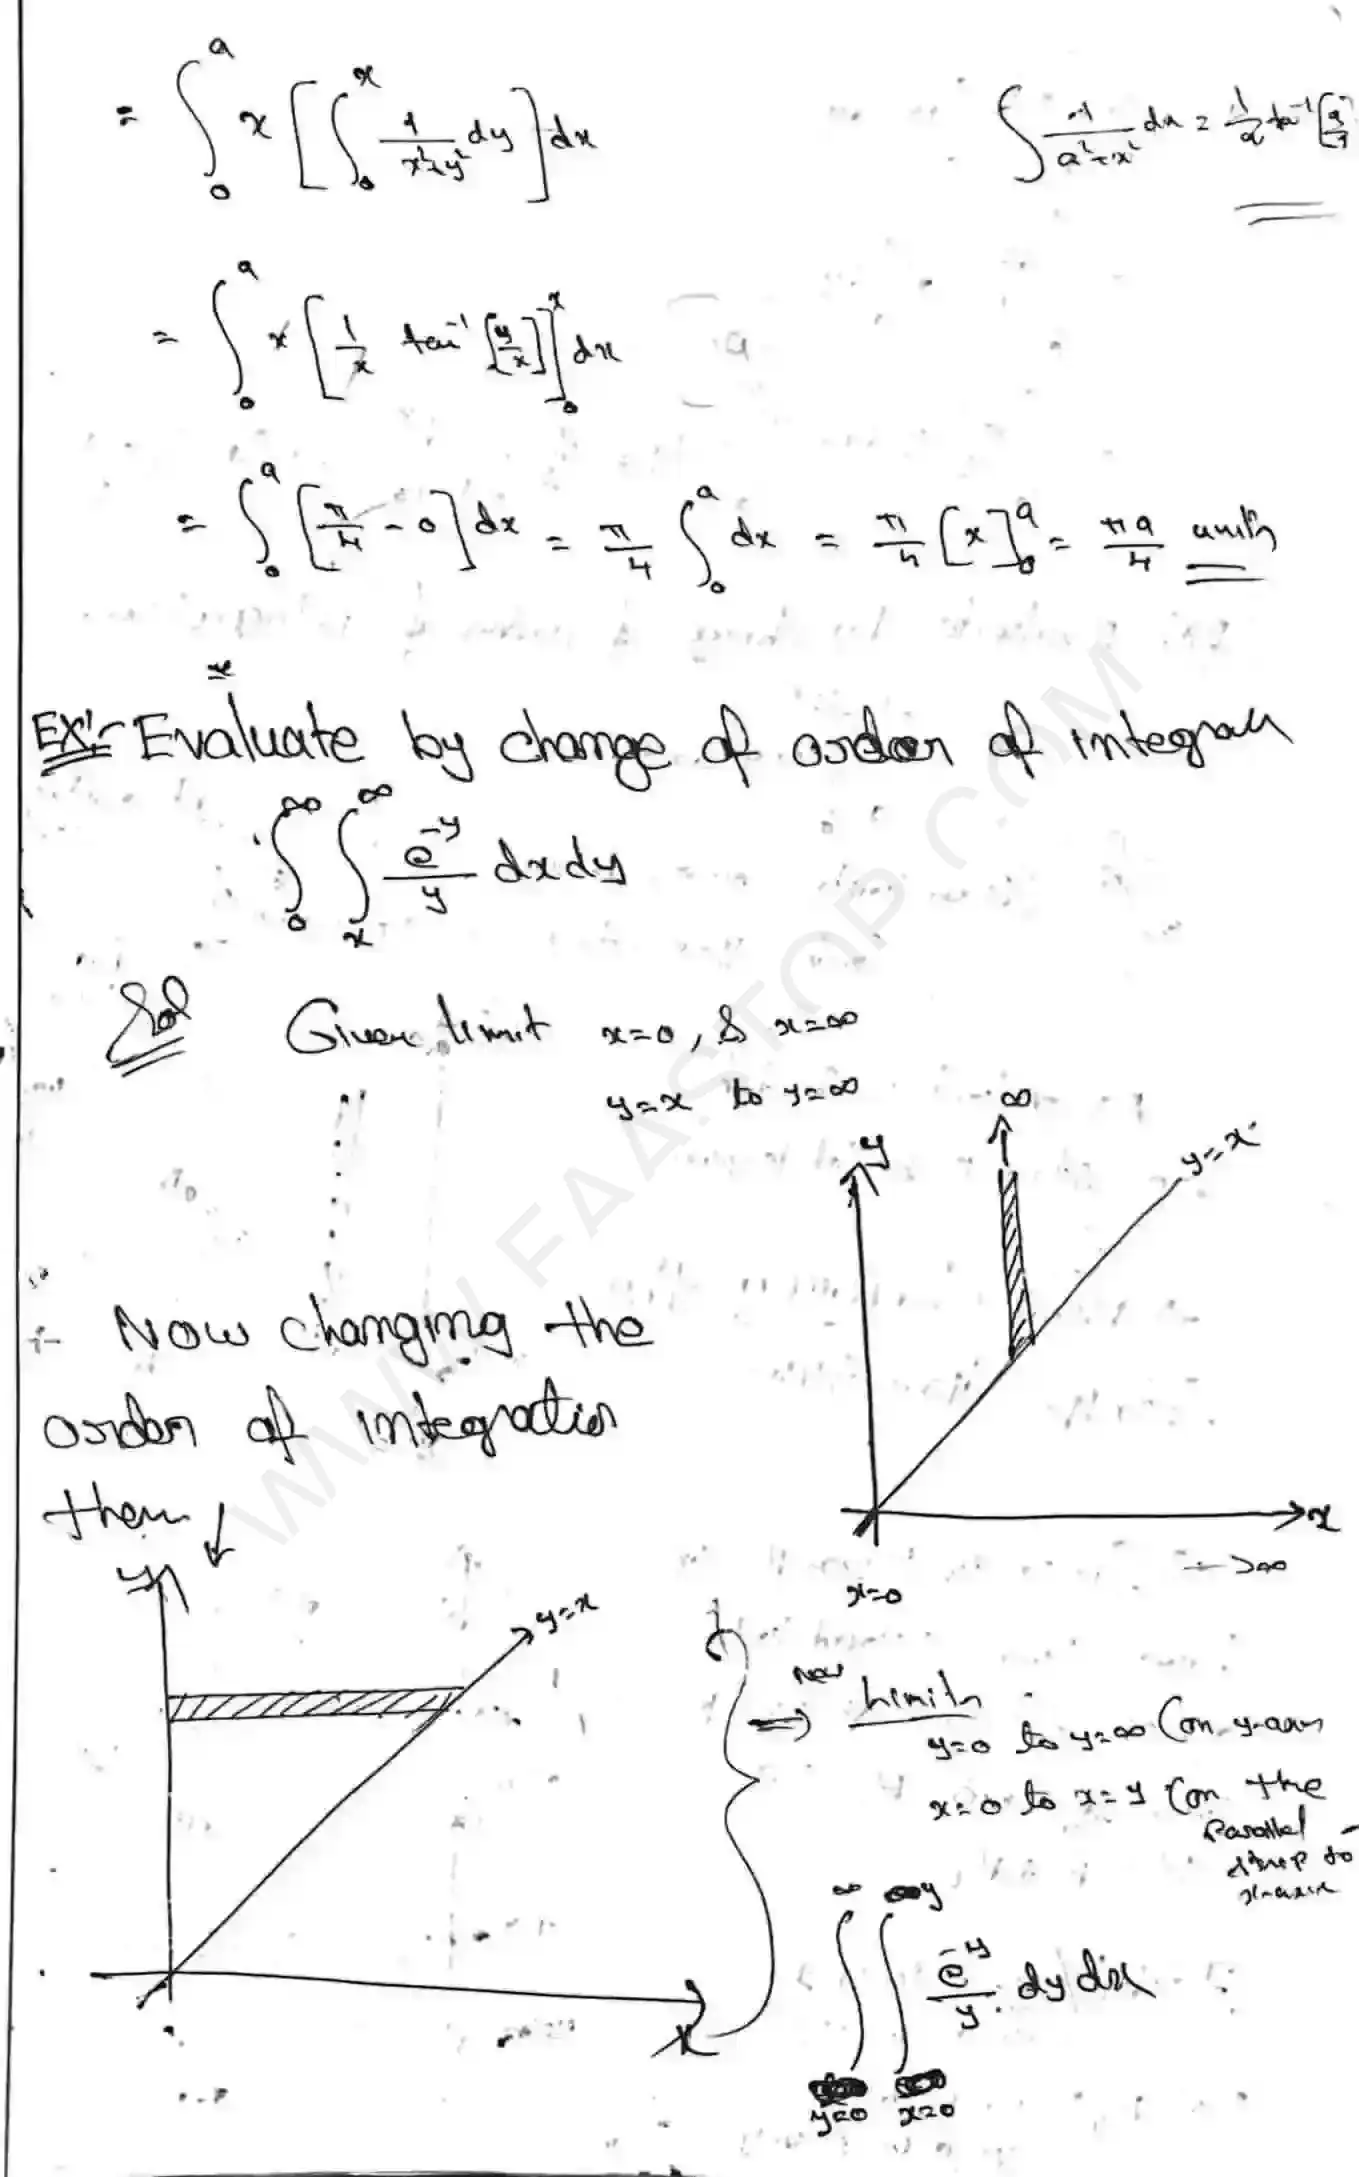 = ∫₀ᵃ x [ ∫₀ˣ 1/(x²+y²) dy ] dx
∫ 1/(a²+x²) dx = 1/a tan⁻¹[
= ∫₀ᵃ x [ 1/x tan⁻¹ [y/x] ]₀ˣ dx
= ∫₀ᵃ [π/4 - 0] dx = π/4 ∫₀ᵃ dx = π/4 [x]₀ᵃ = πa/4 units
EX:- Evaluate by change of order of integral
∫₀^∞ ∫ₓ^∞ e^-y/y dx dy
Sol Given limit x=0, & x=∞
y=x to y=∞
∞
y
y=x
x
x=0
→∞
Now changing the
order of integration
then ↓
y
y=x
x
⇒ New Limits
y=0 to y=∞ (on y-axis
x=0 to x=y (on the
Parallel
strip to
x-axis
∫_{y=0}^∞ ∫_{x=0}^y e^-y/y dy dx
WWW.FAASTOP.COM